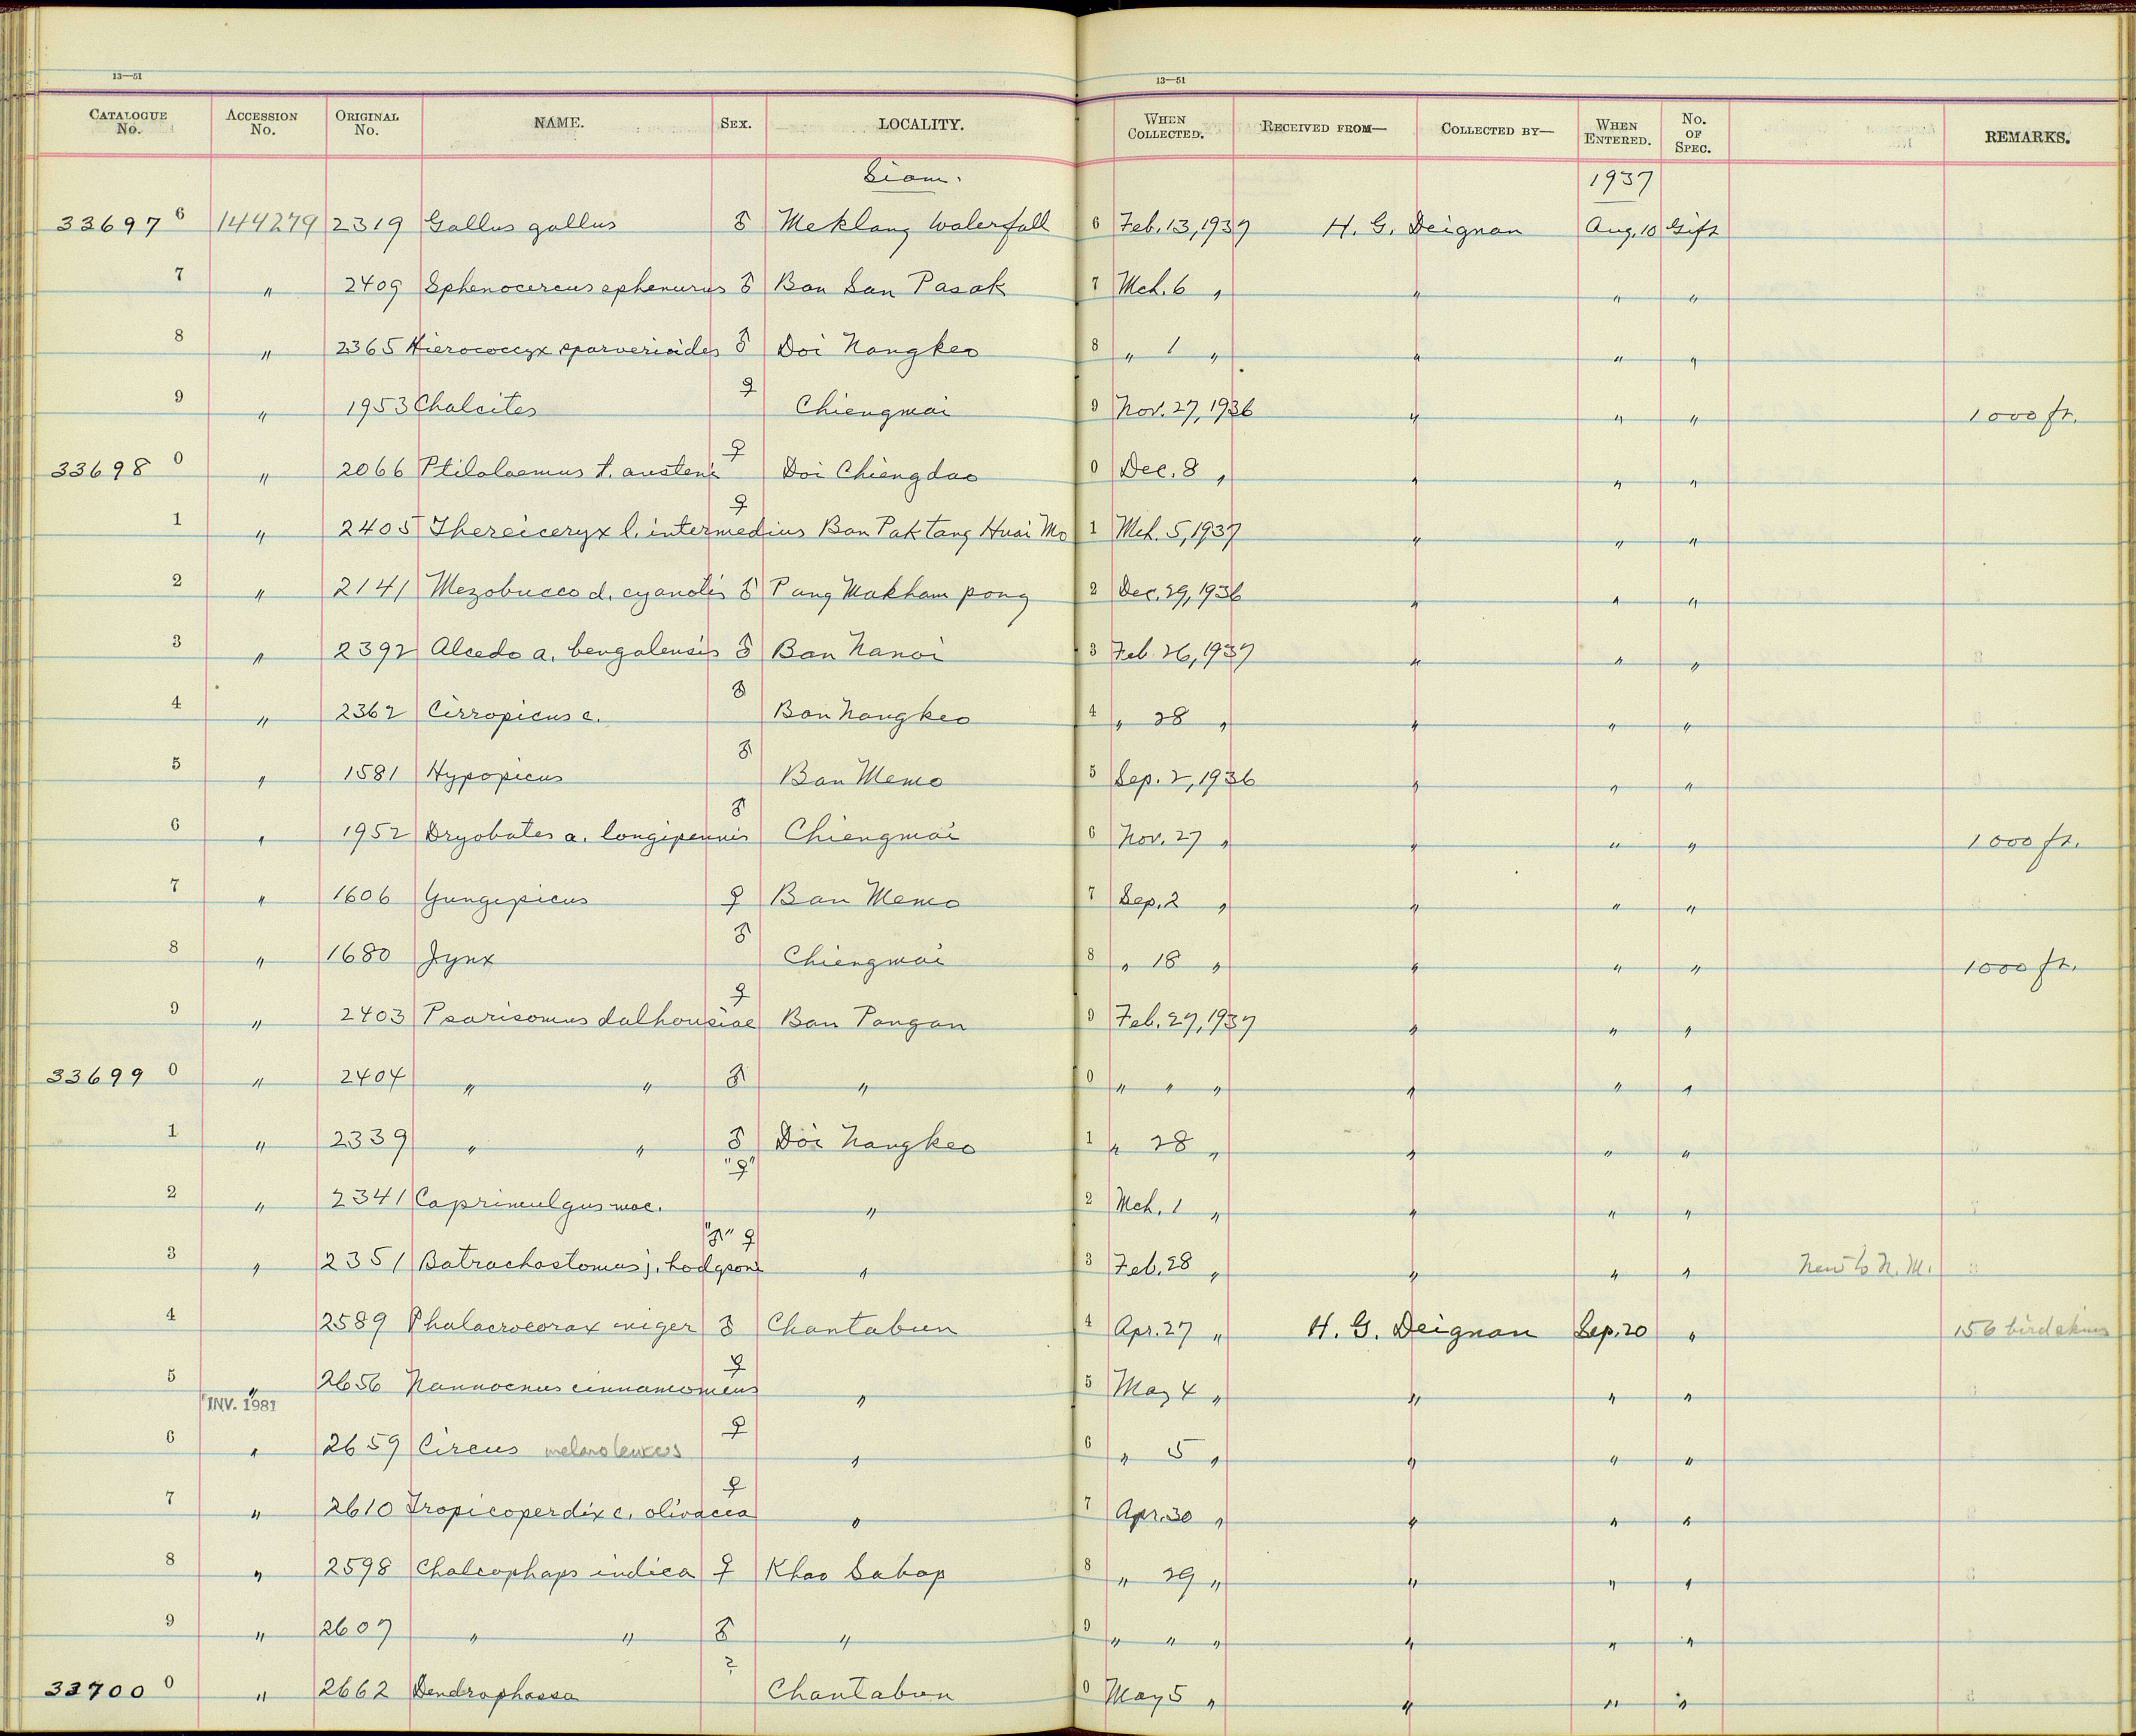 13—51 13—51
CATALOGUE No. ACCESSION No. ORIGINAL No. NAME. SEX. LOCALITY. WHEN COLLECTED. RECEIVED FROM— COLLECTED BY— WHEN ENTERED. No. OF SPEC. REMARKS.
Siam. 1937
33697 6 144279 2319 Gallus gallus ♂ Meklang Waterfall 6 Feb. 13, 1937 H. G. Deignan Aug. 10 Gift
7 " 2409 Sphenocercus sphenurus ♂ Ban San Pasak 7 Mch. 6 " " " "
8 " 2365 Hierococcyx sparverioides ♂ Doi Nangkeo 8 " 1 " " " "
9 " 1953 Chalcites ♀ Chiengmai 9 Nov. 27, 1936 " " " 1000 ft.
33698 0 " 2066 Ptilolaemus t. austeni ♀ Doi Chiengdao 0 Dec. 8 " " " "
1 " 2405 Thereiceryx l. intermedius ♀ Ban Paktang Huai Mo 1 Mch. 5, 1937 " " "
2 " 2141 Mezobucco d. cyanotis ♂ Pang Makham pong 2 Dec. 29, 1936 " " "
3 " 2392 Alcedo a. bengalensis ♂ Ban Nanoi 3 Feb. 26, 1937 " " "
4 " 2362 Cirropicus c. ♂ Ban Nangkeo 4 " 28 " " " "
5 " 1581 Hypopicus ♂ Ban Memo 5 Sep. 2, 1936 " " "
6 " 1952 Dryobates a. longipennis ♂ Chiengmai 6 Nov. 27 " " " " 1000 ft.
7 " 1606 Yungipicus ♀ Ban Memo 7 Sep. 2 " " " "
8 " 1680 Jynx ♂ Chiengmai 8 " 18 " " " " 1000 ft.
9 " 2403 Psarisomus dalhousiae ♀ Ban Pangan 9 Feb. 27, 1937 " " "
33699 0 " 2404 " " ♂ " 0 " " " " " "
1 " 2339 " " ♂ Doi Nangkeo 1 " 28 " " " "
2 " 2341 Caprimulgus mac. "♀" " 2 Mch. 1 " " " "
3 " 2351 Batrachostomus j. hodgsoni "♂" ♀ " 3 Feb. 28 " " " " New to N. M.
4 2589 Phalacrocorax niger ♂ Chantabun 4 Apr. 27 " H. G. Deignan Sep. 20 " 156 birdskins
5 " 2656 Nannocnus cinnamomeus ♀ " 5 May 4 " " " "
INV. 1981
6 " 2659 Circus melanoleucos ♀ " 6 " 5 " " " "
7 " 2610 Tropicoperdix c. olivacea ♀ " 7 Apr. 30 " " " "
8 " 2598 Chalcophaps indica ♀ Khao Sabap 8 " 29 " " " "
9 " 2607 " " ♂ " 9 " " " " " "
33700 0 " 2662 Dendrophassa ? Chantabun 0 May 5 " " " "